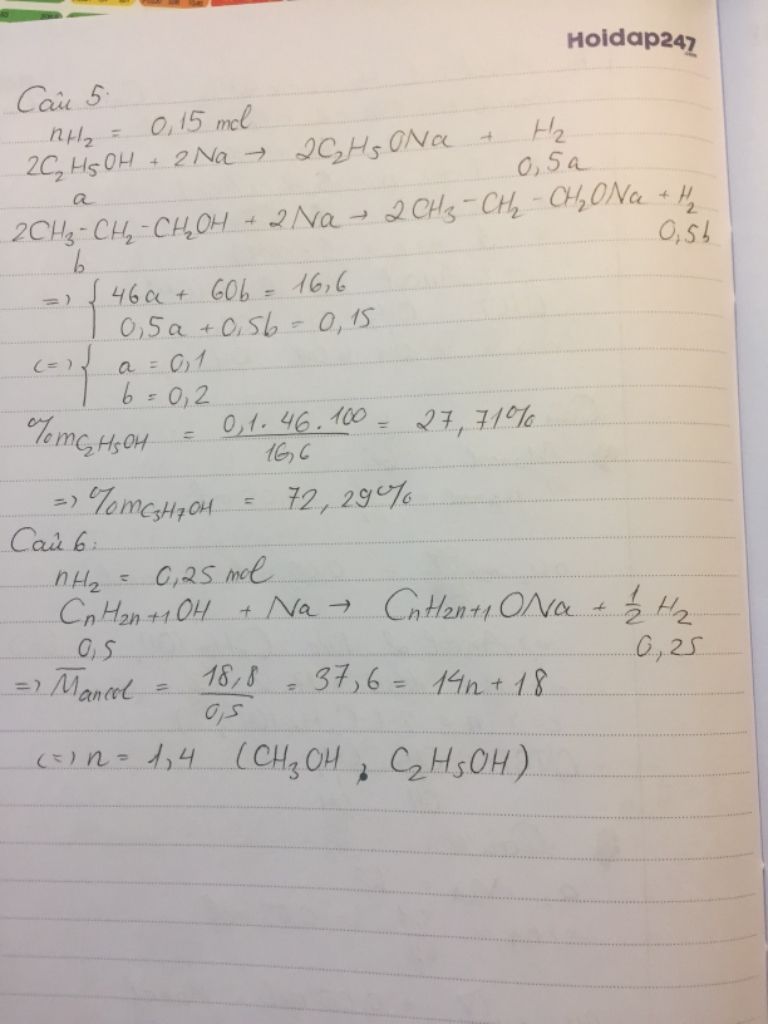 Hoidap247
.com
Câu 5:
nH₂ = 0,15 mol
2C₂H₅OH + 2Na → 2C₂H₅ONa + H₂
a 0,5a
2CH₃-CH₂-CH₂OH + 2Na → 2CH₃-CH₂-CH₂ONa + H₂
b 0,5b
=> { 46a + 60b = 16,6
0,5a + 0,5b = 0,15
<=> { a = 0,1
b = 0,2
%mC₂H₅OH = 0,1. 46. 100 / 16,6 = 27,71%
=> %mC₃H₇OH = 72,29%
Câu 6:
nH₂ = 0,25 mol
CnH2n+1OH + Na → CnH2n+1ONa + 1/2 H₂
0,5 0,25
=> M̅ancol = 18,8 / 0,5 = 37,6 = 14n + 18
<=> n = 1,4 (CH₃OH, C₂H₅OH)